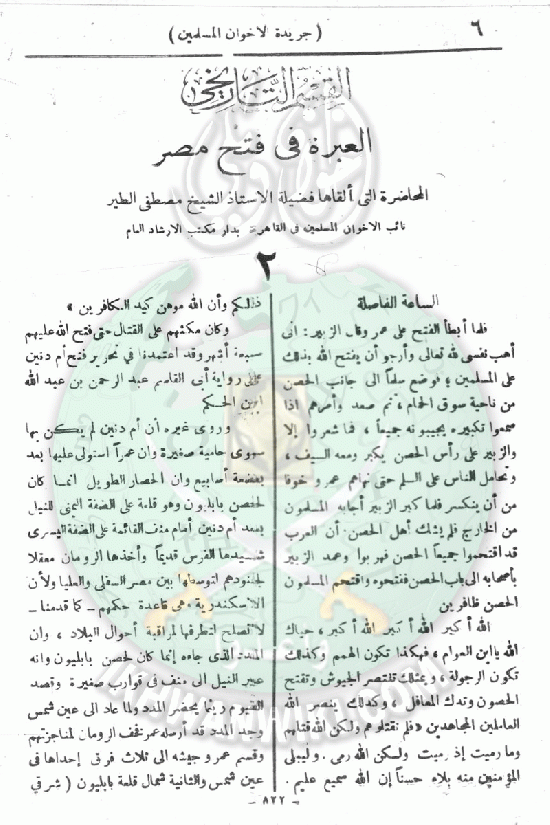 ٦
( جريدة الاخوان المسلمين )
القسم التاريخي
العبرة فى فتح مصر
المحاضرة التى ألقاها فضيلة الاستاذ الشيخ مصطفى الطير
نائب الاخوان المسلمين فى القاهرة بدار مكتب الارشاد العام
٢
الساعة الفاصلة
فلما أبطأ الفتح على عمر وقال الزبير : انى
أهب نفسى لله تعالى وأرجو أن يفتح الله بذلك
على المسلمين ، فوضع سلماً الى جانب الحصن
من ناحية سوق الحمام ، ثم صعد وأمرهم اذا
سمعوا تكبيره يجيبونه جميعاً ، فما شعروا إلا
والزبير على رأس الحصن يكبر ومعه السيف ،
وتحامل الناس على السلم حتى نهاهم عمرو خوفا
من أن ينكسر فلما كبر الزبير أجابه المسلمون
من الخارج فلم يشك أهل الحصن أن العرب
قد اقتحموا جميعاً الحصن فهربوا وعمد الزبير
بأصحابه الى باب الحصن ففتحوه واقتحم المسلمون
الحصن ظافرين
الله أكبر الله أكبر الله أكبر ، حياك
الله يا ابن العوام ، فهكذا تكون الهمم وكذلك
تكون الرجولة ، وبمثلك تنتصر الجيوش وتفتح
الحصون وتدك المعاقل ، وكذلك ينصر الله
العاملين المجاهدين « فلم تقتلوهم ولكن الله قتلهم
وما رميت إذ رميت ولكن الله رمى . وليبلى
المؤمنين منه بلاء حسناً إن الله سميع عليم .
ذلكم وأن الله موهن كيد الكافرين »
وكان مكثهم على القتال حتى فتح الله عليهم
سبعة أشهر وقد اعتمدنا فى تحرير فتح أم دنين
على رواية أبى القاسم عبد الرحمن بن عبد الله
ابن الحكم
وروى غيره أن أم دنين لم يكن بها
سوى حامية صغيرة وان عمراً استولى عليها بعد
بضعة أسابيع وان الحصار الطويل انما كان
لحصن بابليون وهو قلعة على الضفة اليمنى للنيل
بعد أم دنين أمام منف القائمة على الضفة اليسرى
شيدها الفرس قديماً وأخذها الرومان معقلا
لجنودهم لتوسطها بين مصر السفلى والعليا ولأن
الاسكندرية - هى قاعدة حكمهم - كما قدمنا -
لا تصلح لتطرفها لمراقبة أحوال البلاد ، وان
المدد الذى جاءه إنما كان لحصن بابليون وانه
عبر النيل الى منف فى قوارب صغيرة وقصد
الفيوم ريثما يحضر المدد ولما عاد الى عين شمس
وجد المدد قد أرسله عمر فخف الرومان لمناجزتهم
وقسم عمرو جيشه الى ثلاث فرق إحداها فى
عين شمس والثانية شمال قلعة بابليون ( شرقي
- ٨٢٢ -
IKHWANWIKI.COM